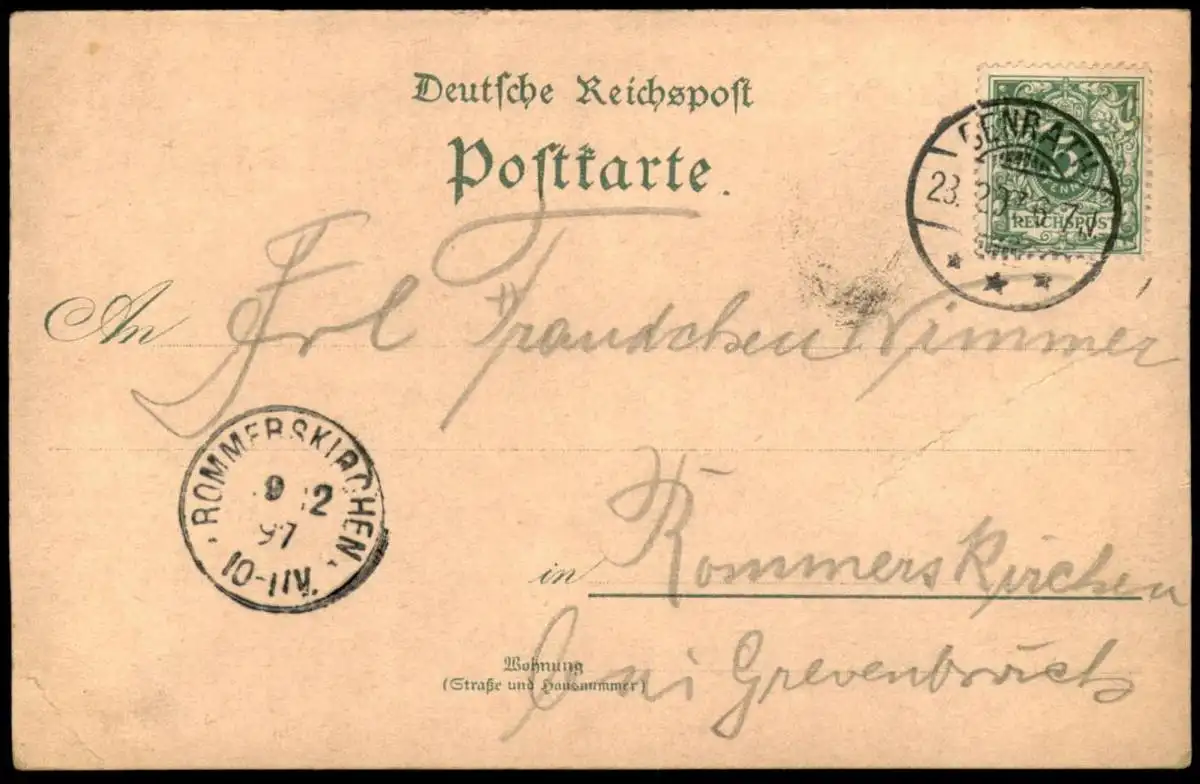 Deutsche Reichspost
Postkarte.
5
PFENNIG
REICHSPOST
BENRATH
23.
6-7N
An Frl Traudchen Wimmer
ROMMERSKIRCHEN.
9 12
97
10-11V.
in Rommerskirchen
Wohnung
(Straße und Hausnummer)
bei Grevenbroich